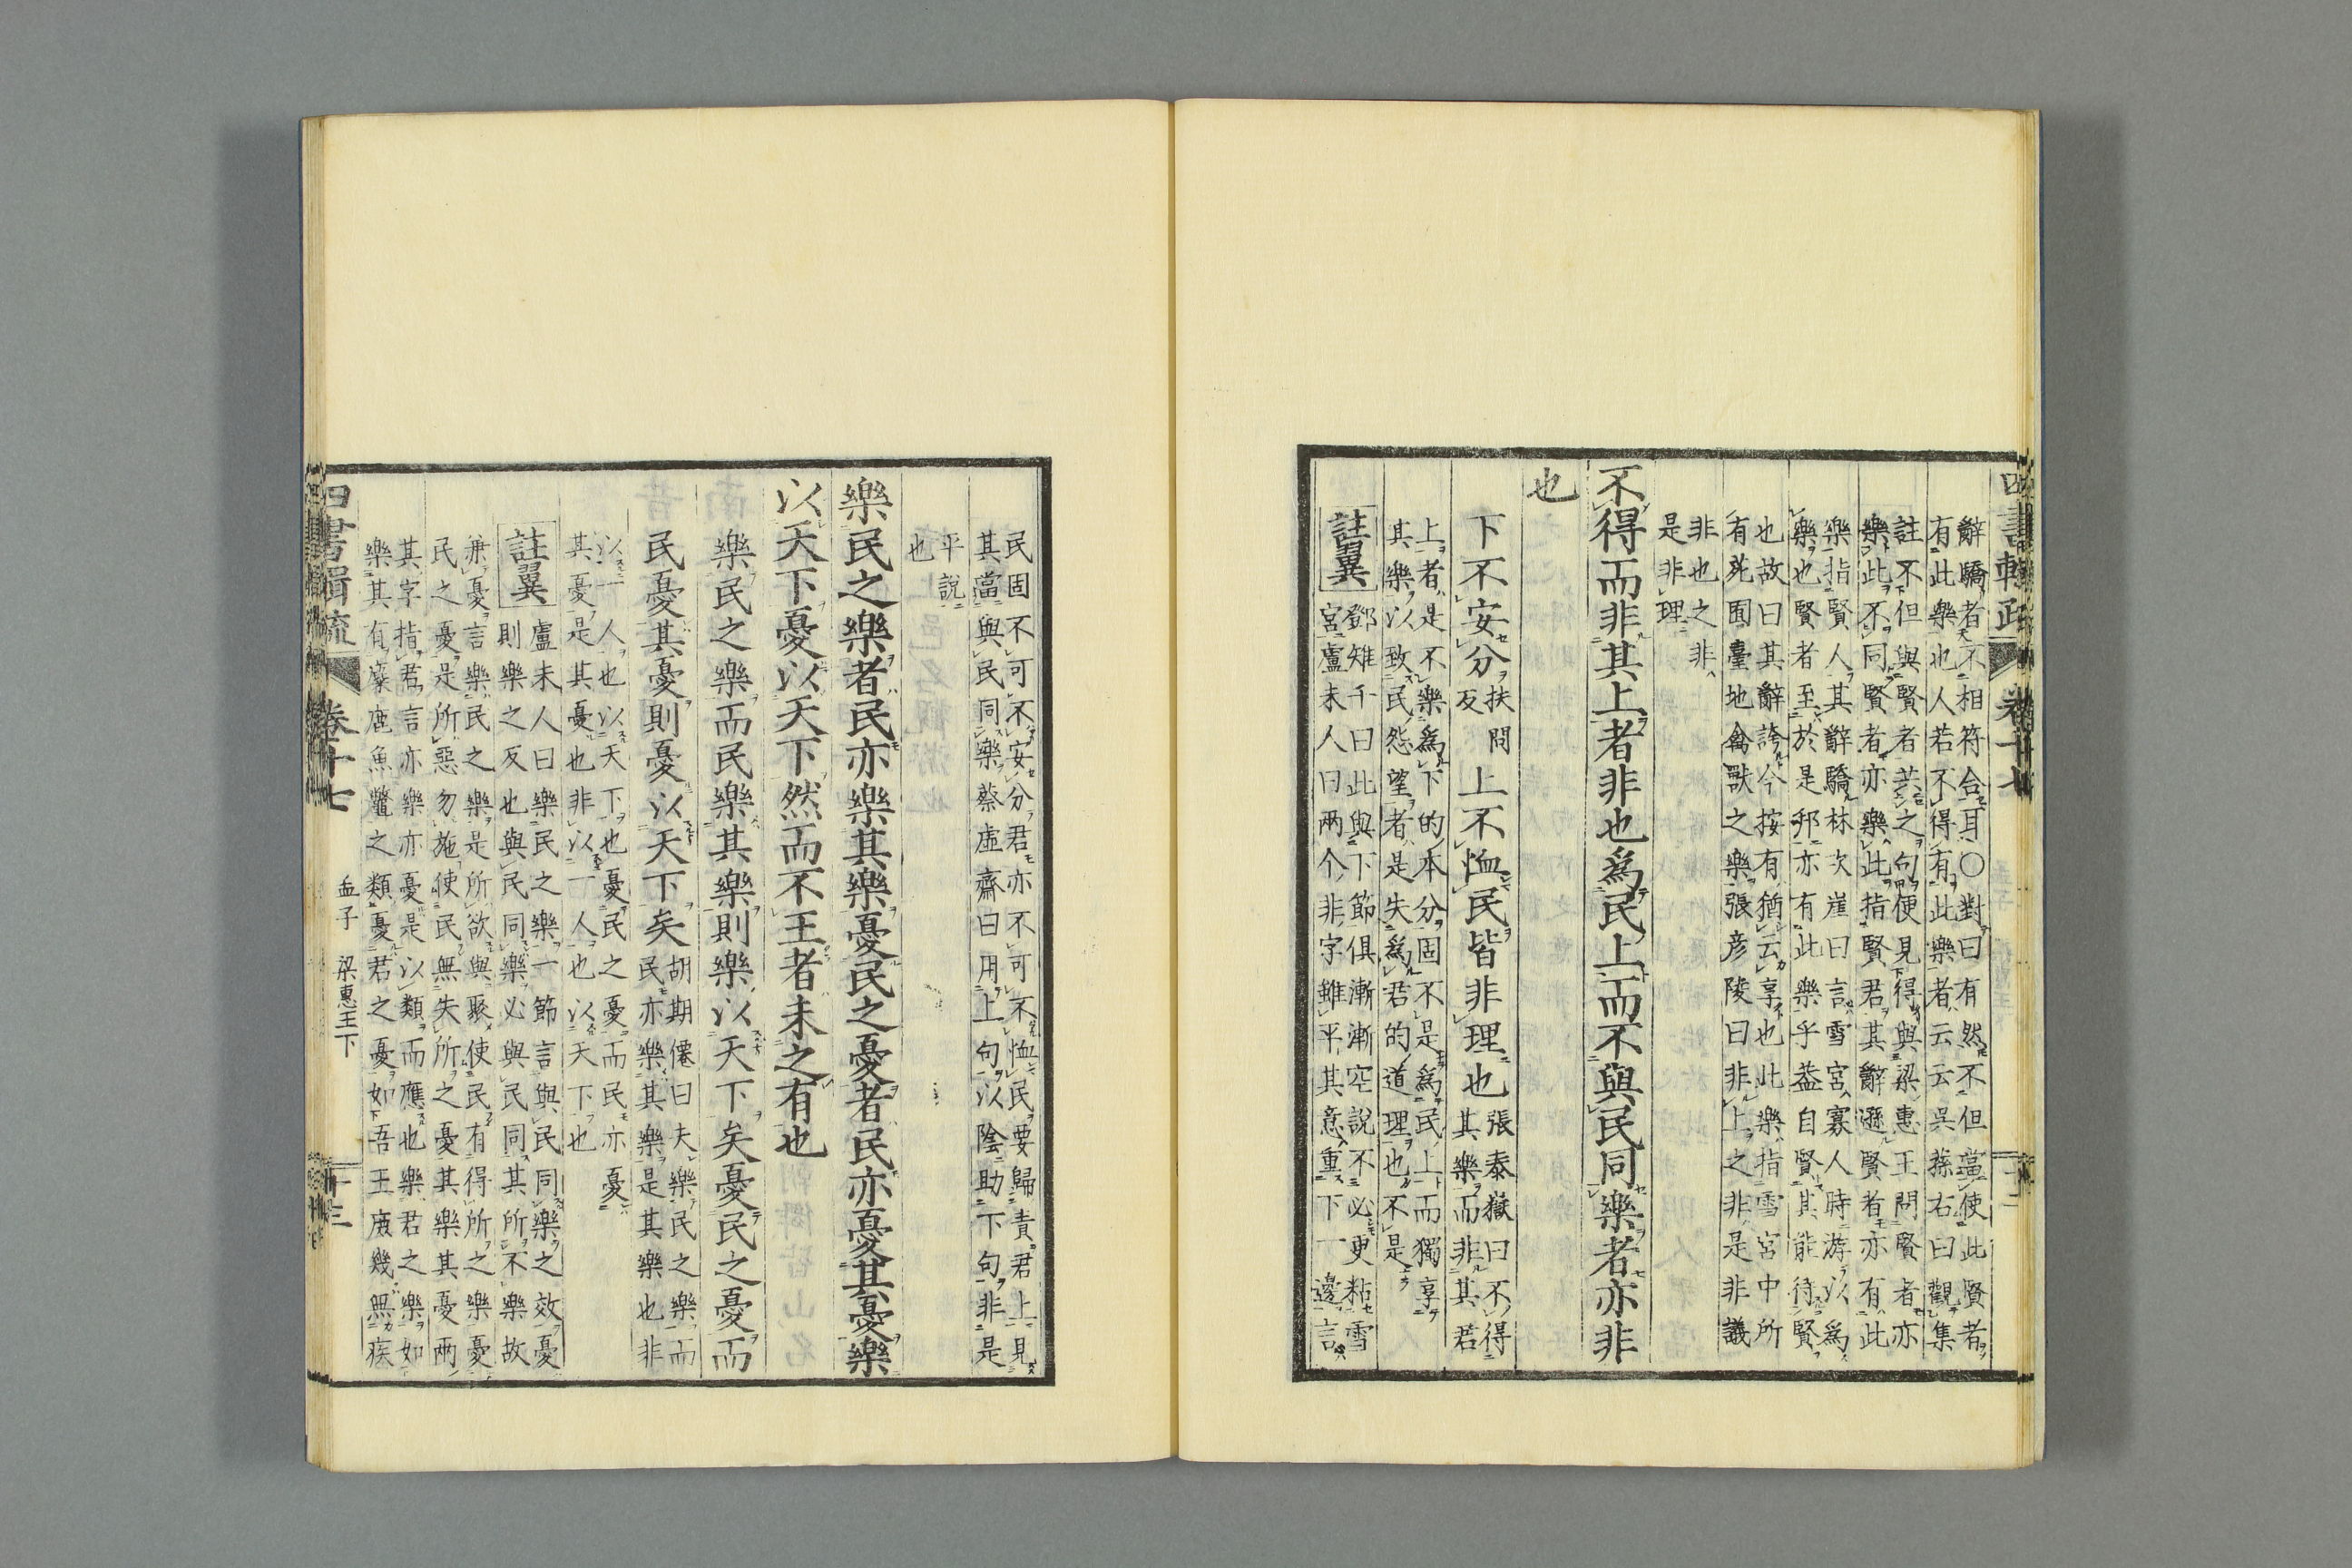 四書輯疏 卷十七
辭驕者不相符合耳○對曰有然不但當使此賢者
有此樂也人若不得有此樂者云云吳蓀右曰觀集
註不但與賢者共之句便見得與梁惠王問賢者亦
樂此不同賢者亦樂此指賢君其辭遜賢者亦有此
樂指賢人其辭驕林次崖曰言雪宮寡人時游以爲
樂也賢者至於是邦亦有此樂乎蓋自賢其能待賢
也故曰其辭誇今按有猶云享也此樂指雪宮中所
有苑囿臺地禽獸之樂張彥陵曰非上之非是非議
非也之非
是非理
不得而非其上者非也爲民上而不與民同樂者亦非
也
下不安分扶問反上不恤民皆非理也張泰嶽曰不得其樂而非其君
上者是不樂爲下的本分固不是爲民上而獨享
其樂以致民怨望者是失爲君的道理也不是
註翼 鄧雉千曰此與下節俱漸漸空說不必更粘雪
宮盧未人曰兩个非字雖平其意重下一邊言
民固不可不安分君亦不可不恤民要歸責君上見
其當與民同樂蔡虛齋曰用上句以陰助下句非是
平說
也
樂民之樂者民亦樂其樂憂民之憂者民亦憂其憂樂
以天下憂以天下然而不王者未之有也
樂民之樂而民樂其樂則樂以天下矣憂民之憂而
民憂其憂則憂以天下矣胡期僊曰夫樂民之樂而民亦樂其樂是其樂也非
以一人也以天下也憂民之憂而民亦憂
其憂是其憂也非以一人也以天下也
註翼 盧未人曰樂民之樂一節言與民同樂之效憂
則樂之反也與民同樂必與民同其所不樂故
兼憂言樂民之樂是所欲與聚使民有得所之樂憂
民之憂是所惡勿施使民無失所之憂其樂其憂兩
其字指君言亦樂亦憂是以類而應也樂君之樂如
樂其有麋鹿魚鼈之類憂君之憂如吾王庶幾無疾
四書輯疏 卷十七 孟子 梁惠王下 十三